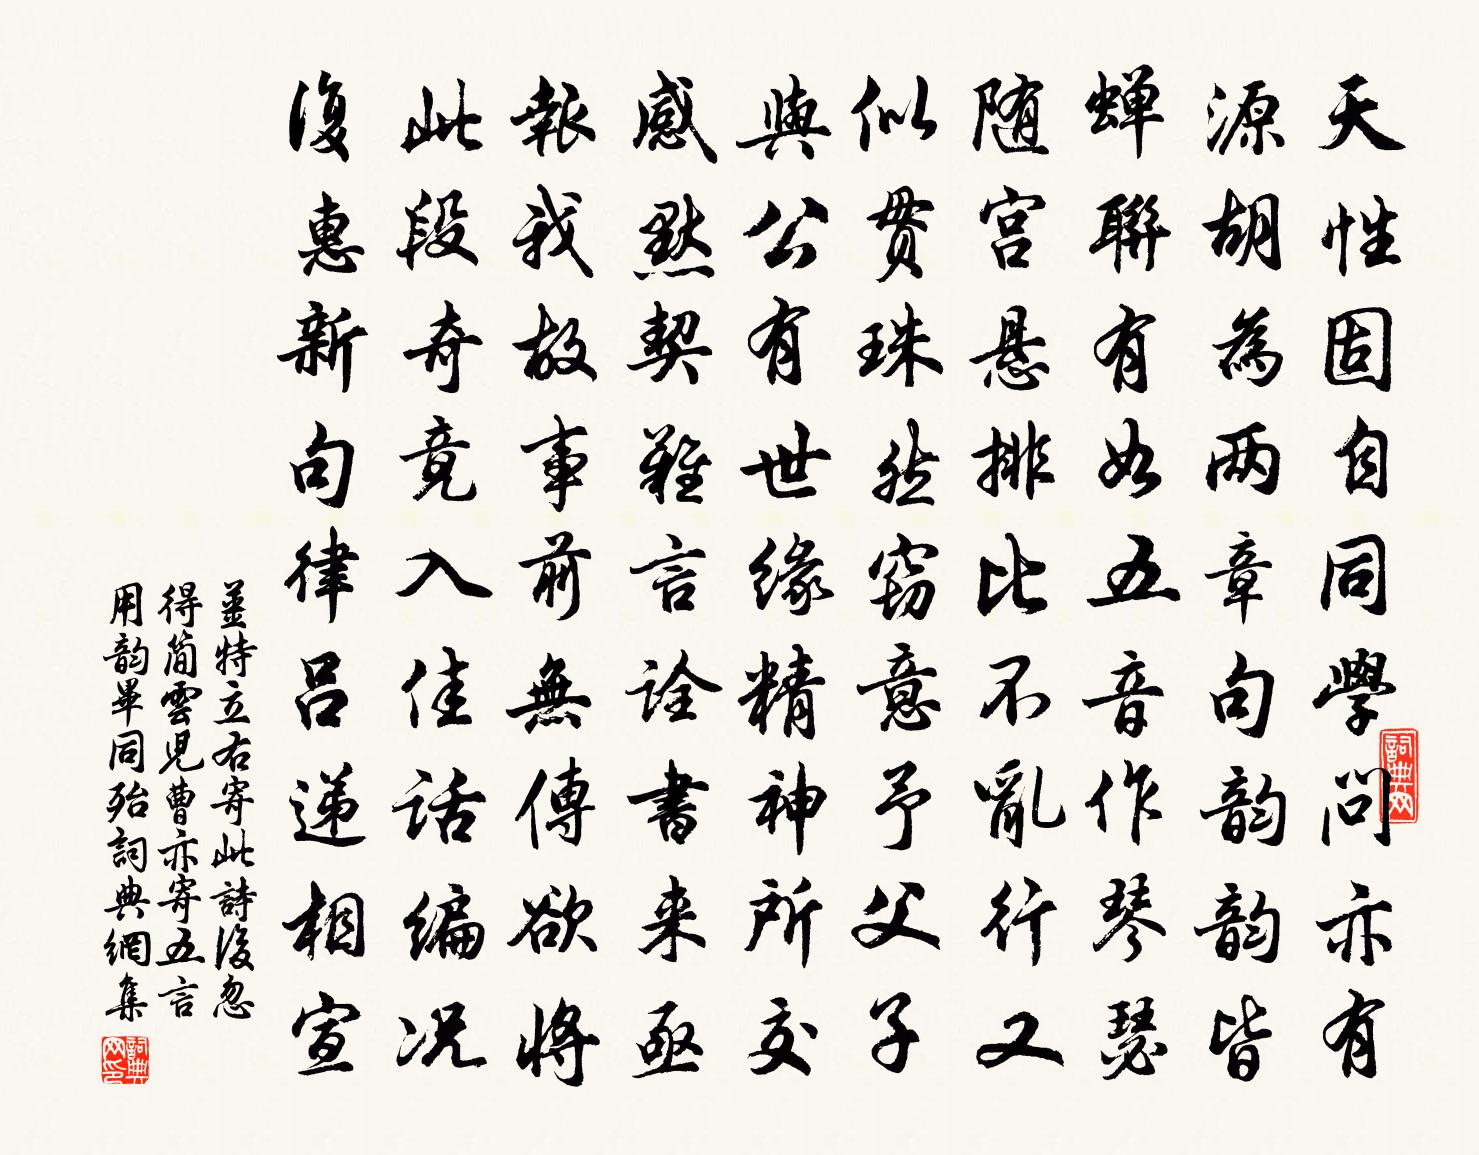 天性固自同學問亦有
源胡為两章句韵韵皆
蝉聯有如五音作琴瑟
随宫悬排比不亂行又
似贯珠然窃意予父子
與公有世缘精神所交
感默契難言诠書来亟
報我故事前無傳欲將
此段奇竟入佳话编况
復惠新句律吕递相宣
薑特立右寄此詩後忽
得简雲児曹亦寄五言
用韵畢同殆詞典網集
詞典网
詞典网印